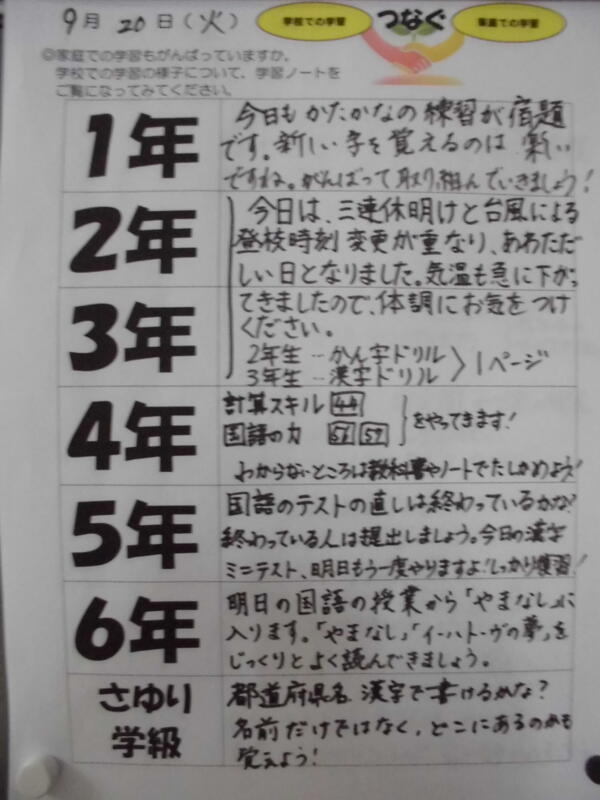 9月 20日(火)
学校での学習
つなぐ
家庭での学習
◎家庭での学習もがんばっていますか。
学校での学習の様子について、学習ノートを
ご覧になってみてください。
1年
今日もかたかなの練習が宿題
です。新しい字を覚えるのは楽しい
ですね。がんばって取り組んでいきましょう!
2年
3年
今日は、三連休明けと台風による
登校時刻変更が重なり、あわただ
しい日となりました。気温も急に下がっ
てきましたので、体調にお気をつけ
ください。
2年生…かん字ドリル
3年生…漢字ドリル
1ページ
4年
計算スキル 44
国語の力 56 57
をやってきます!
わからないところは教科書やノートでたしかめよう!
5年
国語のテストの直しは終わっているかな?
終わっている人は提出しましょう。今日の漢字
ミニテスト、明日もう一度やりますよ!しっかり練習!
6年
明日の国語の授業から「やまなし」に
入ります。「やまなし」「イーハトーヴの夢」を
じっくりとよく読んできましょう。
さゆり
学級
都道府県名 漢字で書けるかな?
名前だけではなく、どこにあるのかも
覚えよう!